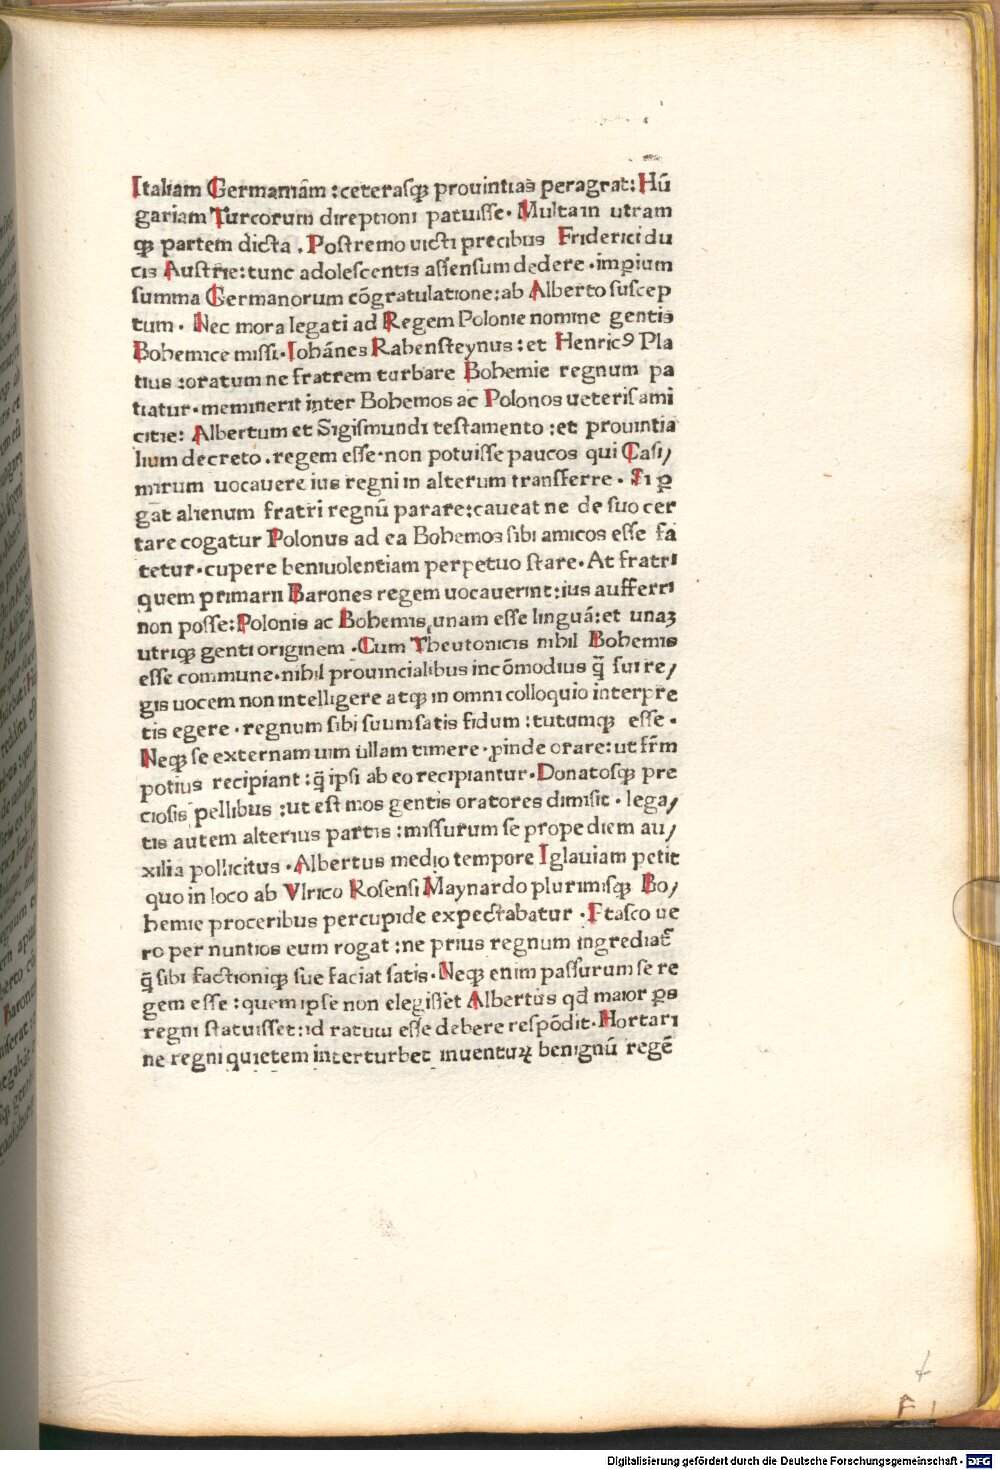 Italiam Germaniam : ceterasqꝫ prouintias peragrat: Hū
gariam Turcorum direptioni patuisse· Multa in utram
qꝫ partem dicta . Postremo uicti precibus Friderici du
cis Austrie: tunc adolescentis assensum dedere · imꝑium
summa Germanorum cōgratulatione: ab Alberto suscep
tum · Nec mora legati ad Regem Polonie nomine gentis
Bohemice missi· Iohānes Rabensteynus: et Henricꝰ Pla
tius : oratum ne fratrem turbare Bohemie regnum pa
tiatur· meminerit inter Bohemos ac Polonos ueteris ami
citie: Albertum et Sigismundi testamento : et prouintia
lium decreto . regem esse· non potuisse paucos qui Casi/
mirum uocauere ius regni in alterum transferre · Si ꝑ
gāt alienum fratri regnū parare: caueat ne de suo cer
tare cogatur Polonus ad ea Bohemos sibi amicos esse fa
tetur· cupere beniuolentiam perpetuo stare· At fratri
quem primarii Barones regem uocauerint: ius aufferri
non posse: Polonis ac Bohemis unam esse linguā: et unaꝫ
utriqꝫ genti originem · Cum Theutonicis nihil Bohemis
esse commune· nihil prouincialibus incōmodius q̄ sui re/
gis uocem non intelligere atqꝫ in omni colloquio interpre
tis egere · regnum sibi suum satis fidum : tutumqꝫ esse ·
Neqꝫ se externam uim ullam timere · ꝓinde orare: ut fr̄m
potius recipiant : q̄ ipsi ab eo recipiantur· Donatosqꝫ pre
ciosis pellibus : ut est mos gentis oratores dimisit · lega/
tis autem alterius partis : missurum se propediem au/
xilia pollicitus · Albertus medio tempore Iglauiam petit
quo in loco ab Vlrico Rosensi Maynardo plurimisqꝫ Bo/
hemie proceribus percupide expectabatur · Ptasco ue
ro per nuntios eum rogat : ne prius regnum ingrediat᷑
q̄ sibi factioniqꝫ sue faciat satis· Neqꝫ enim passurum se re
gem esse : quem ipse non elegisset Albertus qd̄ maior ꝑs
regni statuisset: id ratum esse debere respōdit· Hortari
ne regni quietem interturbet inuenturꝝ benignū regē
F 1
Digitalisierung gefördert durch die Deutsche Forschungsgemeinschaft - DFG